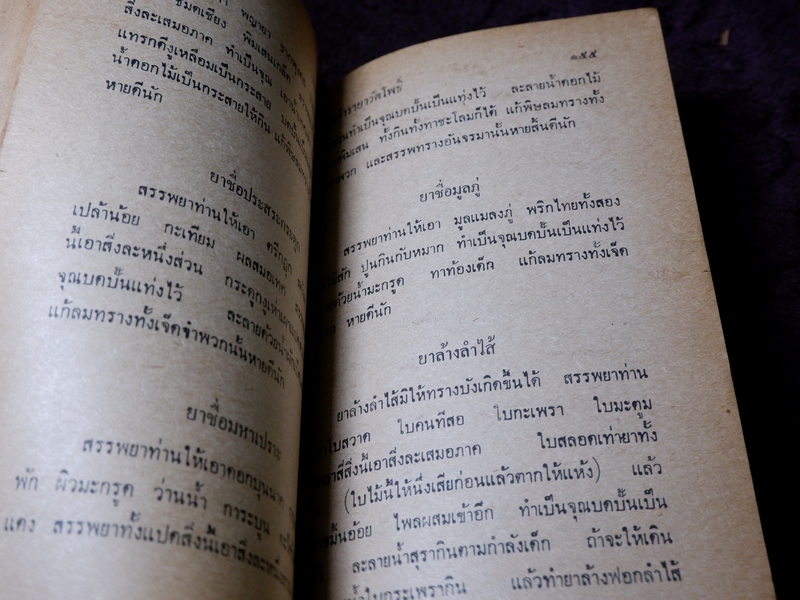 พญายา
ชะมดเชียง พิมเสนเกล็ด
สิ่งละเสมอภาค ทำเป็นจุณ
แทรกดีงูเหลือมเป็นกระสาย
น้ำดอกไม้เป็นกระสายให้กิน
หายดีนัก
ยาชื่อประสะกระดูก
สรรพยาท่านให้เอา
เปล้าน้อย กะเทียม ผลสมอเทศ
นี้เอาสิ่งละหนึ่งส่วน กระดูกงูเห่าเผา
จุณบดปั้นแท่งไว้ ละลายด้วยน้ำ
แก้ลมทรางทั้งเจ็ดจำพวกนั้นหายดีนัก
ยาชื่อมหาเปราะ
สรรพยาท่านให้เอาดอกบุนนาค
พัก ผิวมะกรูด ว่านน้ำ การะบูน
แดง สรรพยาทั้งแปดสิ่งนี้เอาสิ่งละ
๑๕๕
ตำรายาวัดโพธิ์
ทำเป็นจุณบดปั้นเป็นแท่งไว้ ละลายน้ำดอกไม้
พิมเสน ทั้งกินทั้งทาชะโลมก็ได้ แก้พิษลมทรางทั้ง
พวก และสรรพทรางอันจรมานั้นหายสิ้นดีนัก
ยาชื่อมูลภู่
สรรพยาท่านให้เอา มูลแมลงภู่ พริกไทยทั้งสอง
ปูนกินกับหมาก ทำเป็นจุณบดปั้นเป็นแท่งไว้
ด้วยน้ำมะกรูด ทาท้องเด็ก แก้ลมทรางทั้งเจ็ด
หายดีนัก
ยาล้างลำไส้
ยาล้างลำไส้มิให้ทรางบังเกิดขึ้นได้ สรรพยาท่าน
ใบสวาด ใบคนทีสอ ใบกะเพรา ใบมะตูม
ยาสี่สิ่งนี้เอาสิ่งละเสมอภาค ใบสลอดเท่ายาทั้ง
(ใบไม้นี้ให้นึ่งเสียก่อนแล้วตากให้แห้ง) แล้ว
ขมิ้นอ้อย ไพลผสมเข้าอีก ทำเป็นจุณบดปั้นเป็น
ละลายน้ำสุรากินตามกำลังเด็ก ถ้าจะให้เดิน
น้ำใบกระเพรากิน แล้วทำยาล้างฟอกลำไส้